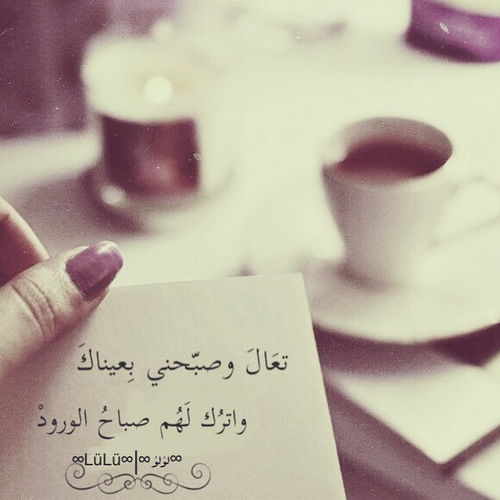 تعَالَ وصبّحني بِعيناكَ
واترُك لَهُم صباحُ الورودْ
∞LüLü∞|∞لۈلۈ∞